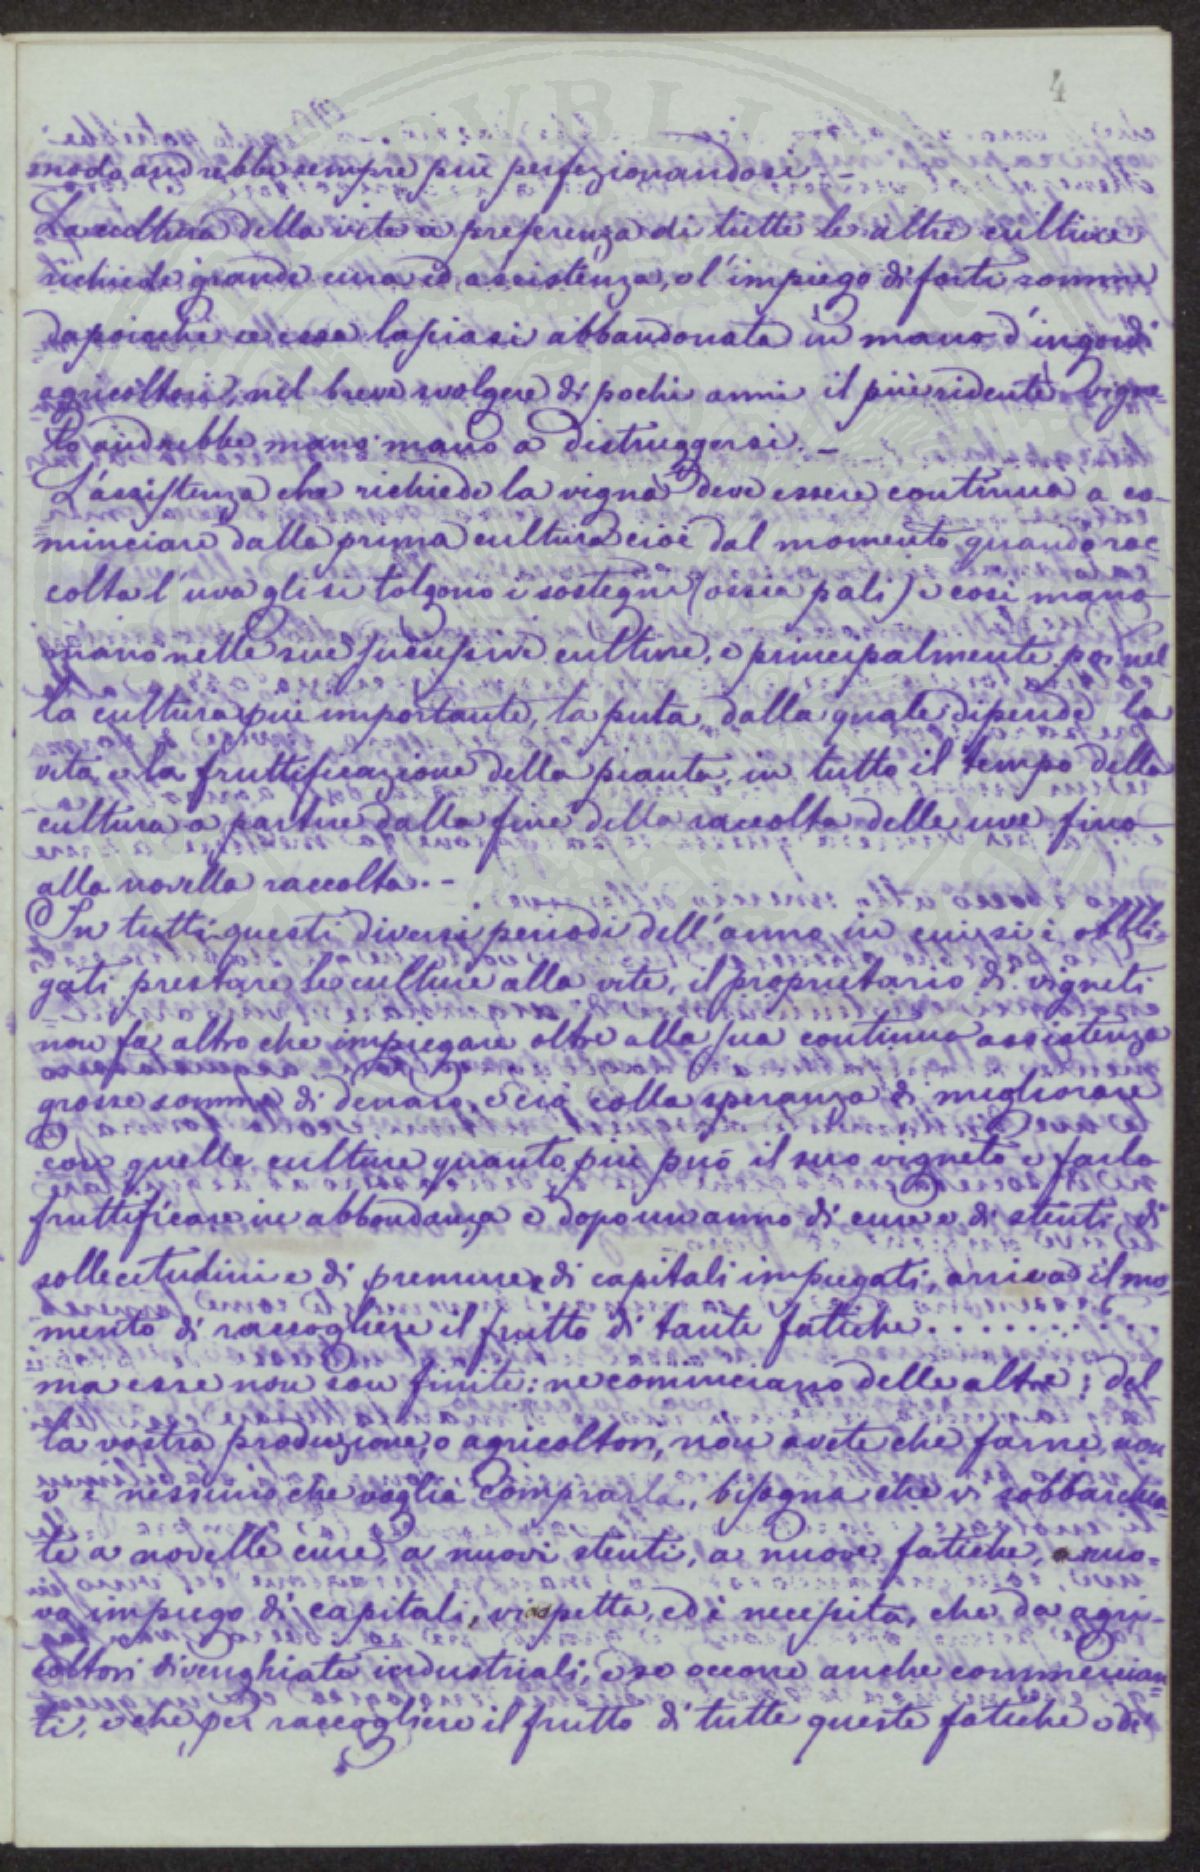 4
modo andrebbe sempre più perfezionandosi. —
La cultura della vite a preferenza di tutte le altre culture
richiede grande cura ed assistenza, e l'impiego di forti somme
dapoicchè se essa lasciasi abbandonata in mano d'ingordi
agricoltori, nel breve svolgere di pochi anni il più ridente vigne=
to andrebbe mano mano a distruggersi. —
L'assistenza che richiede la vigna deve essere continua a co-
minciare dalla prima cultura cioè dal momento quando rac=
colta l'uva gli si tolgono i sostegni (ossia pali) e così mano
mano nelle sue successive culture, e principalmente poi nel-
la cultura più importante, la puta, dalla quale dipende la
vita e la fruttificazione della pianta, in tutto il tempo della
cultura a partire dalla fine della raccolta delle uve fino
alla novella raccolta. —
In tutti questi diversi periodi dell'anno in cui si è obbli-
gati prestare le culture alla vite, il proprietario di vigneti
non fa altro che impiegare oltre alla sua continua assistenza
grosse somme di denaro, e ciò colla speranza di migliorare
con quelle culture quanto più può il suo vigneto e farlo
fruttificare in abbondanza e dopo un anno di cure e di stenti di
sollecitudini e di premure e di capitali impiegati, arriva il mo-
mento di raccogliere il frutto di tante fatiche . . . . . . . . . .
ma esse non son finite: ne cominciano delle altre; del-
la vostra produzione, o agricoltori, non avete che farne, non
v'è nessuno che voglia comprarla, bisogna che vi sobbarchia=
te a novelle cure, a nuovi stenti, a nuove fatiche, a nuo-
vo impiego di capitali, vi aspetta, ed è necessità, che da agri-
coltori divenghiate industriali, e se occorre anche commercian=
ti, e che per raccogliere il frutto di tutte queste fatiche e di